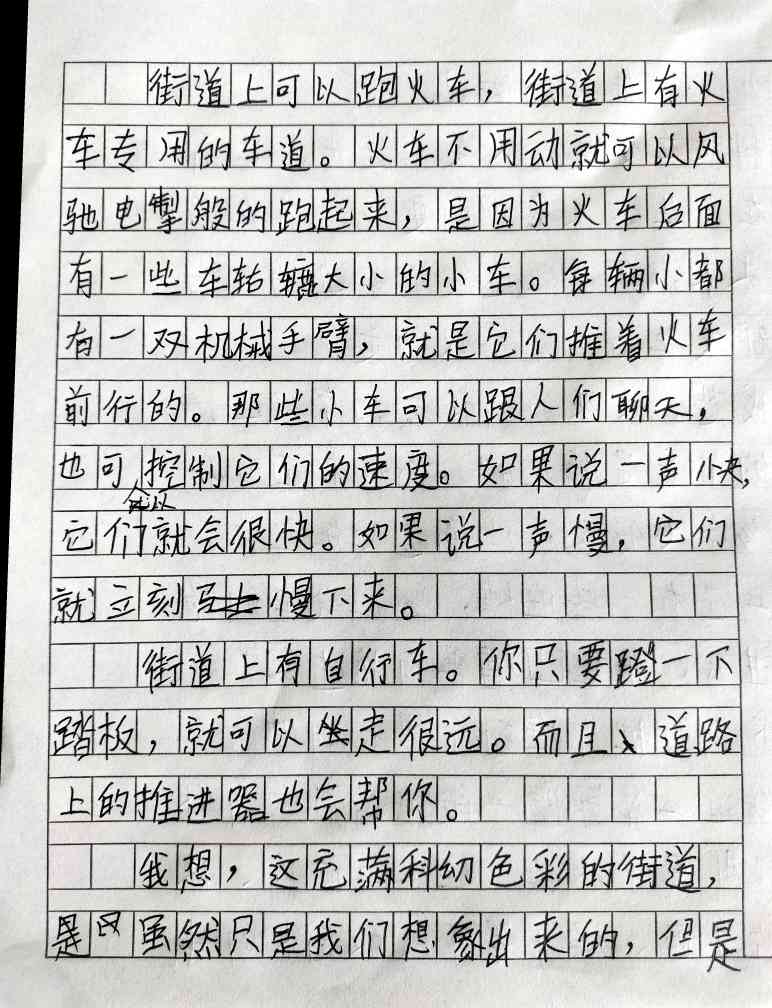 街道上可以跑火车，街道上有火
车专用的车道。火车不用动就可以风
驰电掣般的跑起来，是因为火车后面
有一些车轱辘大小的小车。每辆小都
有一双机械手臂，就是它们推着火车
前行的。那些小车可以跟人们聊天，
也可以控制它们的速度。如果说一声快，
它们就会很快。如果说一声慢，它们
就立刻慢下来。
街道上有自行车。你只要蹬一下
踏板，就可以走很远。而且、道路
上的推进器也会帮你。
我想，这充满科幻色彩的街道，
是虽然只是我们想象出来的，但是